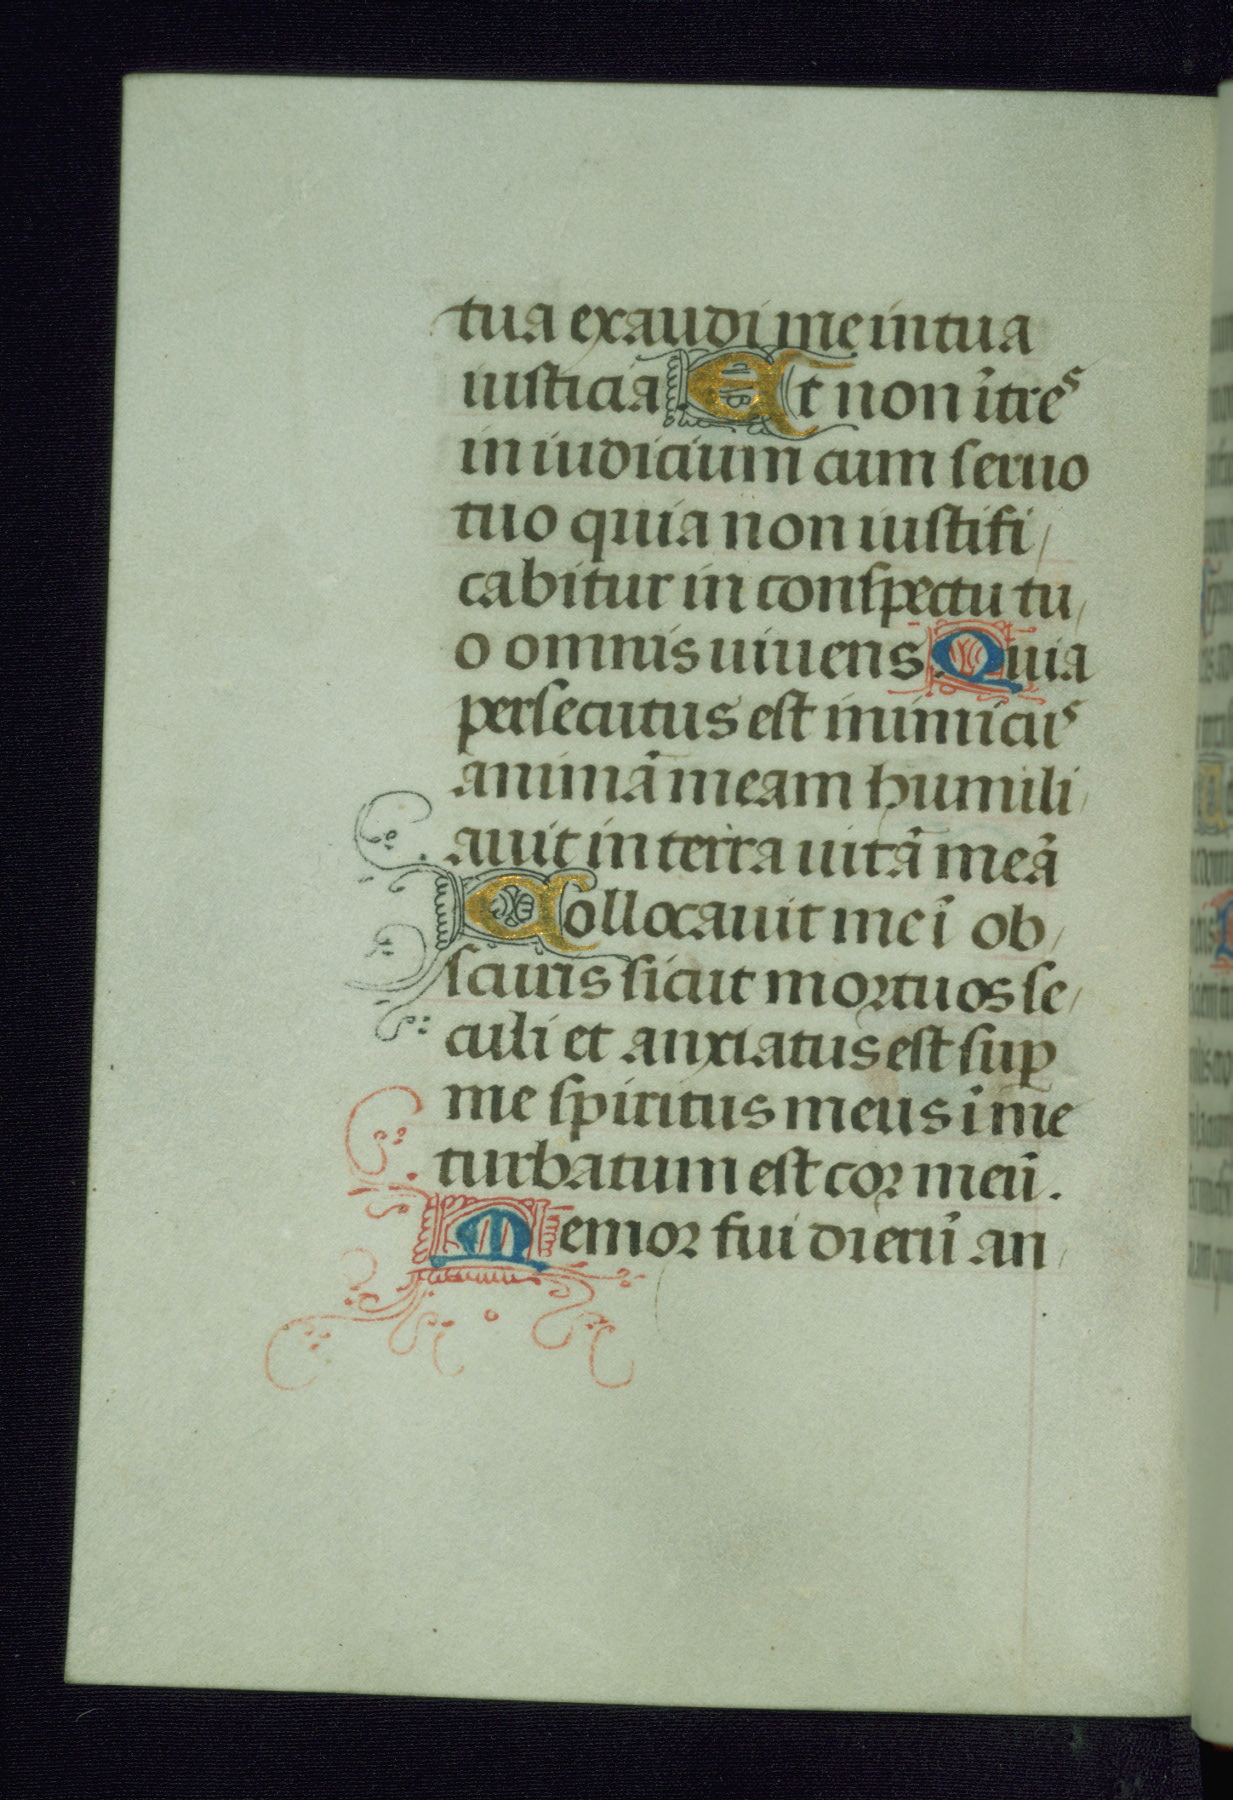 tua exaudi me in tua
iusticia Et non ītres
in iudicium cum seruo
tuo quia non iustifi/
cabitur in conspectu tu/
o omnis uiuens Quia
persecutus est inimicus
animā meam humili/
auit in terra uitā meā
Collocauit me ī ob/
scuris sicut mortuos se/
culi et anxiatus est sup̱
me spiritus meus ī me
turbatum est cor meū.
Memor fui dierū an/